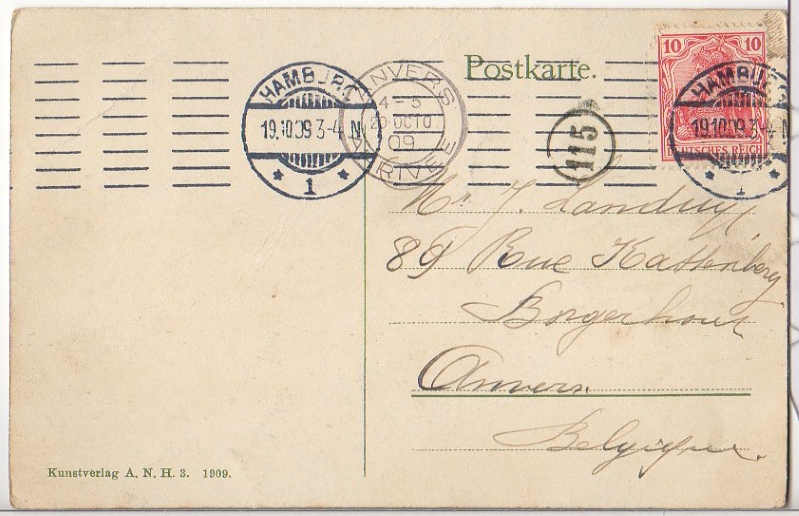 Postkarte.
10 10
DEUTSCHES REICH
HAMBURG
19.10.09.3-4 N
* 1 *
ANVERS
4-5
20 OCTO
09
ARRIVEE
HAMBURG
19.10.09.3-4 N
* 1 *
115
Mr. J.
89 Rue Kattenberg
Borgerhout
Anvers.
Belgique.
Kunstverlag A. N. H. 3. 1909.